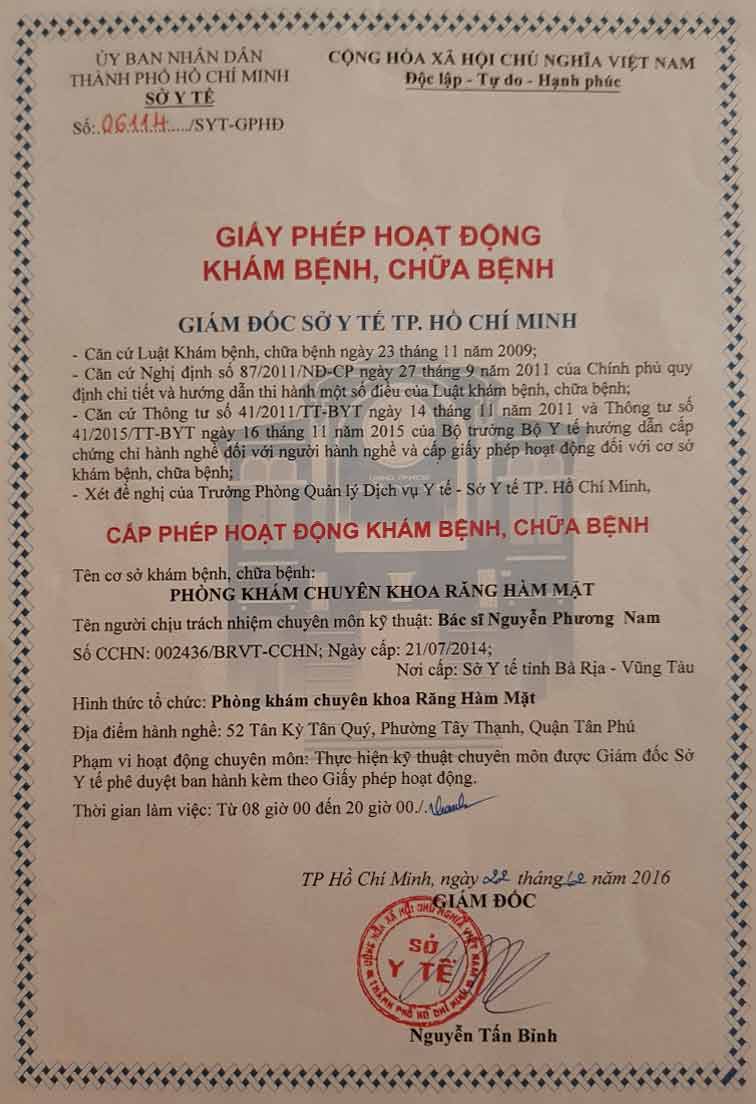 ỦY BAN NHÂN DÂN
THÀNH PHỐ HỒ CHÍ MINH
SỞ Y TẾ
Số:.06114..../SYT-GPHĐ
CỘNG HÒA XÃ HỘI CHỦ NGHĨA VIỆT NAM
Độc lập - Tự do - Hạnh phúc
GIẤY PHÉP HOẠT ĐỘNG
KHÁM BỆNH, CHỮA BỆNH
GIÁM ĐỐC SỞ Y TẾ TP. HỒ CHÍ MINH
- Căn cứ Luật Khám bệnh, chữa bệnh ngày 23 tháng 11 năm 2009;
- Căn cứ Nghị định số 87/2011/NĐ-CP ngày 27 tháng 9 năm 2011 của Chính phủ quy
định chi tiết và hướng dẫn thi hành một số điều của Luật khám bệnh, chữa bệnh;
- Căn cứ Thông tư số 41/2011/TT-BYT ngày 14 tháng 11 năm 2011 và Thông tư số
41/2015/TT-BYT ngày 16 tháng 11 năm 2015 của Bộ trưởng Bộ Y tế hướng dẫn cấp
chứng chỉ hành nghề đối với người hành nghề và cấp giấy phép hoạt động đối với cơ sở
khám bệnh, chữa bệnh;
- Xét đề nghị của Trưởng Phòng Quản lý Dịch vụ Y tế - Sở Y tế TP. Hồ Chí Minh,
CẤP PHÉP HOẠT ĐỘNG KHÁM BỆNH, CHỮA BỆNH
Tên cơ sở khám bệnh, chữa bệnh:
PHÒNG KHÁM CHUYÊN KHOA RĂNG HÀM MẶT
Tên người chịu trách nhiệm chuyên môn kỹ thuật: Bác sĩ Nguyễn Phương Nam
Số CCHN: 002436/BRVT-CCHN; Ngày cấp: 21/07/2014;
Nơi cấp: Sở Y tế tỉnh Bà Rịa - Vũng Tàu
Hình thức tổ chức: Phòng khám chuyên khoa Răng Hàm Mặt
Địa điểm hành nghề: 52 Tân Kỳ Tân Quý, Phường Tây Thạnh, Quận Tân Phú
Phạm vi hoạt động chuyên môn: Thực hiện kỹ thuật chuyên môn được Giám đốc Sở
Y tế phê duyệt ban hành kèm theo Giấy phép hoạt động.
Thời gian làm việc: Từ 08 giờ 00 đến 20 giờ 00./.
TP Hồ Chí Minh, ngày 22 tháng 12 năm 2016
GIÁM ĐỐC
CỘNG HÒA XÃ HỘI CHỦ NGHĨA VIỆT NAM
SỞ
Y TẾ
THÀNH PHỐ HỒ CHÍ MINH
Nguyễn Tấn Bỉnh